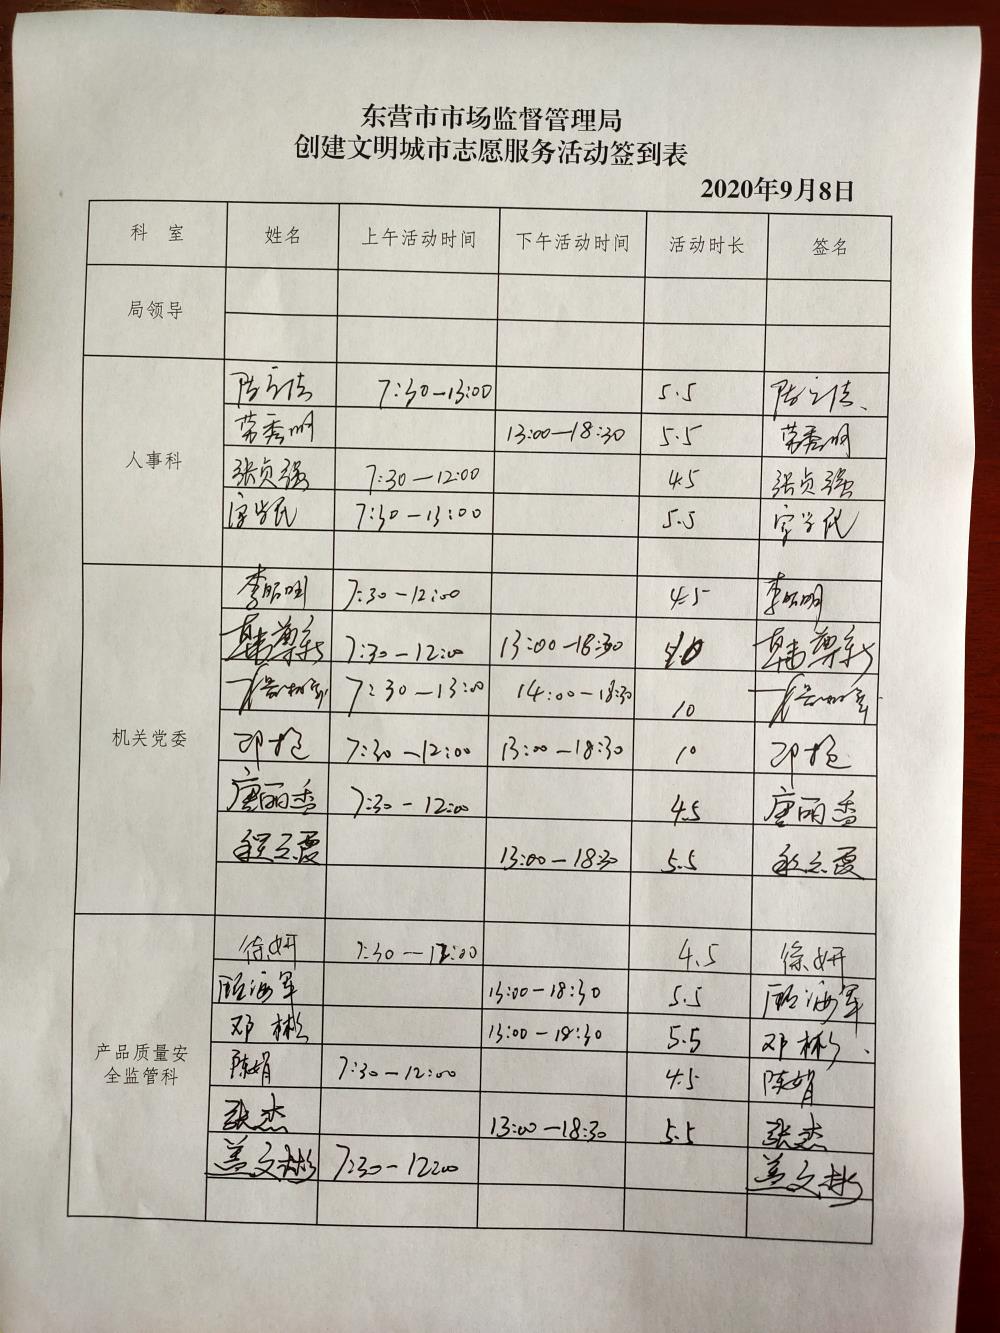 东营市市场监督管理局
创建文明城市志愿服务活动签到表
2020年9月8日
科 室 姓名 上午活动时间 下午活动时间 活动时长 签名
局领导
人事科
7:30—13:00 5.5
13:00—18:30 5.5
张贞强 7:30—12:00 4.5 张贞强
7:30—13:00 5.5
机关党委
李昭明 7:30—12:00 4.5 李昭明
韩尊新 7:30—12:00 13:00—18:30 10 韩尊新
7:30—13:00 14:00—18:30 10
7:30—12:00 13:00—18:30 10
唐丽香 7:30—12:00 4.5 唐丽香
程云霞 13:00—18:30 5.5 程云霞
产品质量安
全监管科
徐妍 7:30—12:00 4.5 徐妍
顾海军 13:00—18:30 5.5 顾海军
邓彬 13:00—18:30 5.5 邓彬
陈娟 7:30—12:00 4.5 陈娟
张杰 13:00—18:30 5.5 张杰
盖文彬 7:30—12:00 盖文彬